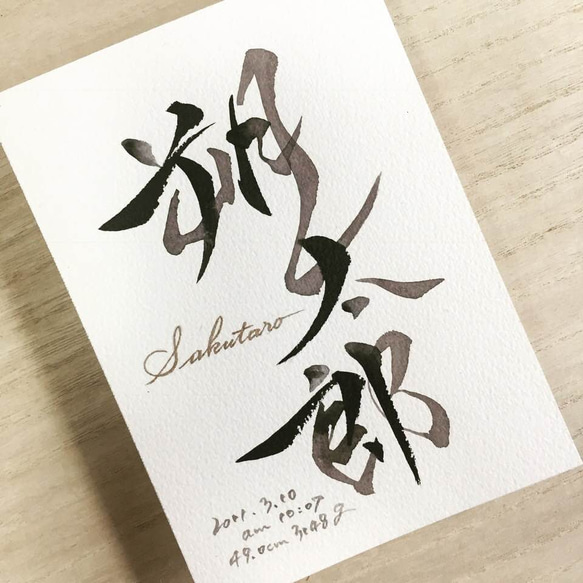 朔太郎
Sakutaro
2011.3.10
am 10:07
49.0cm 3148g